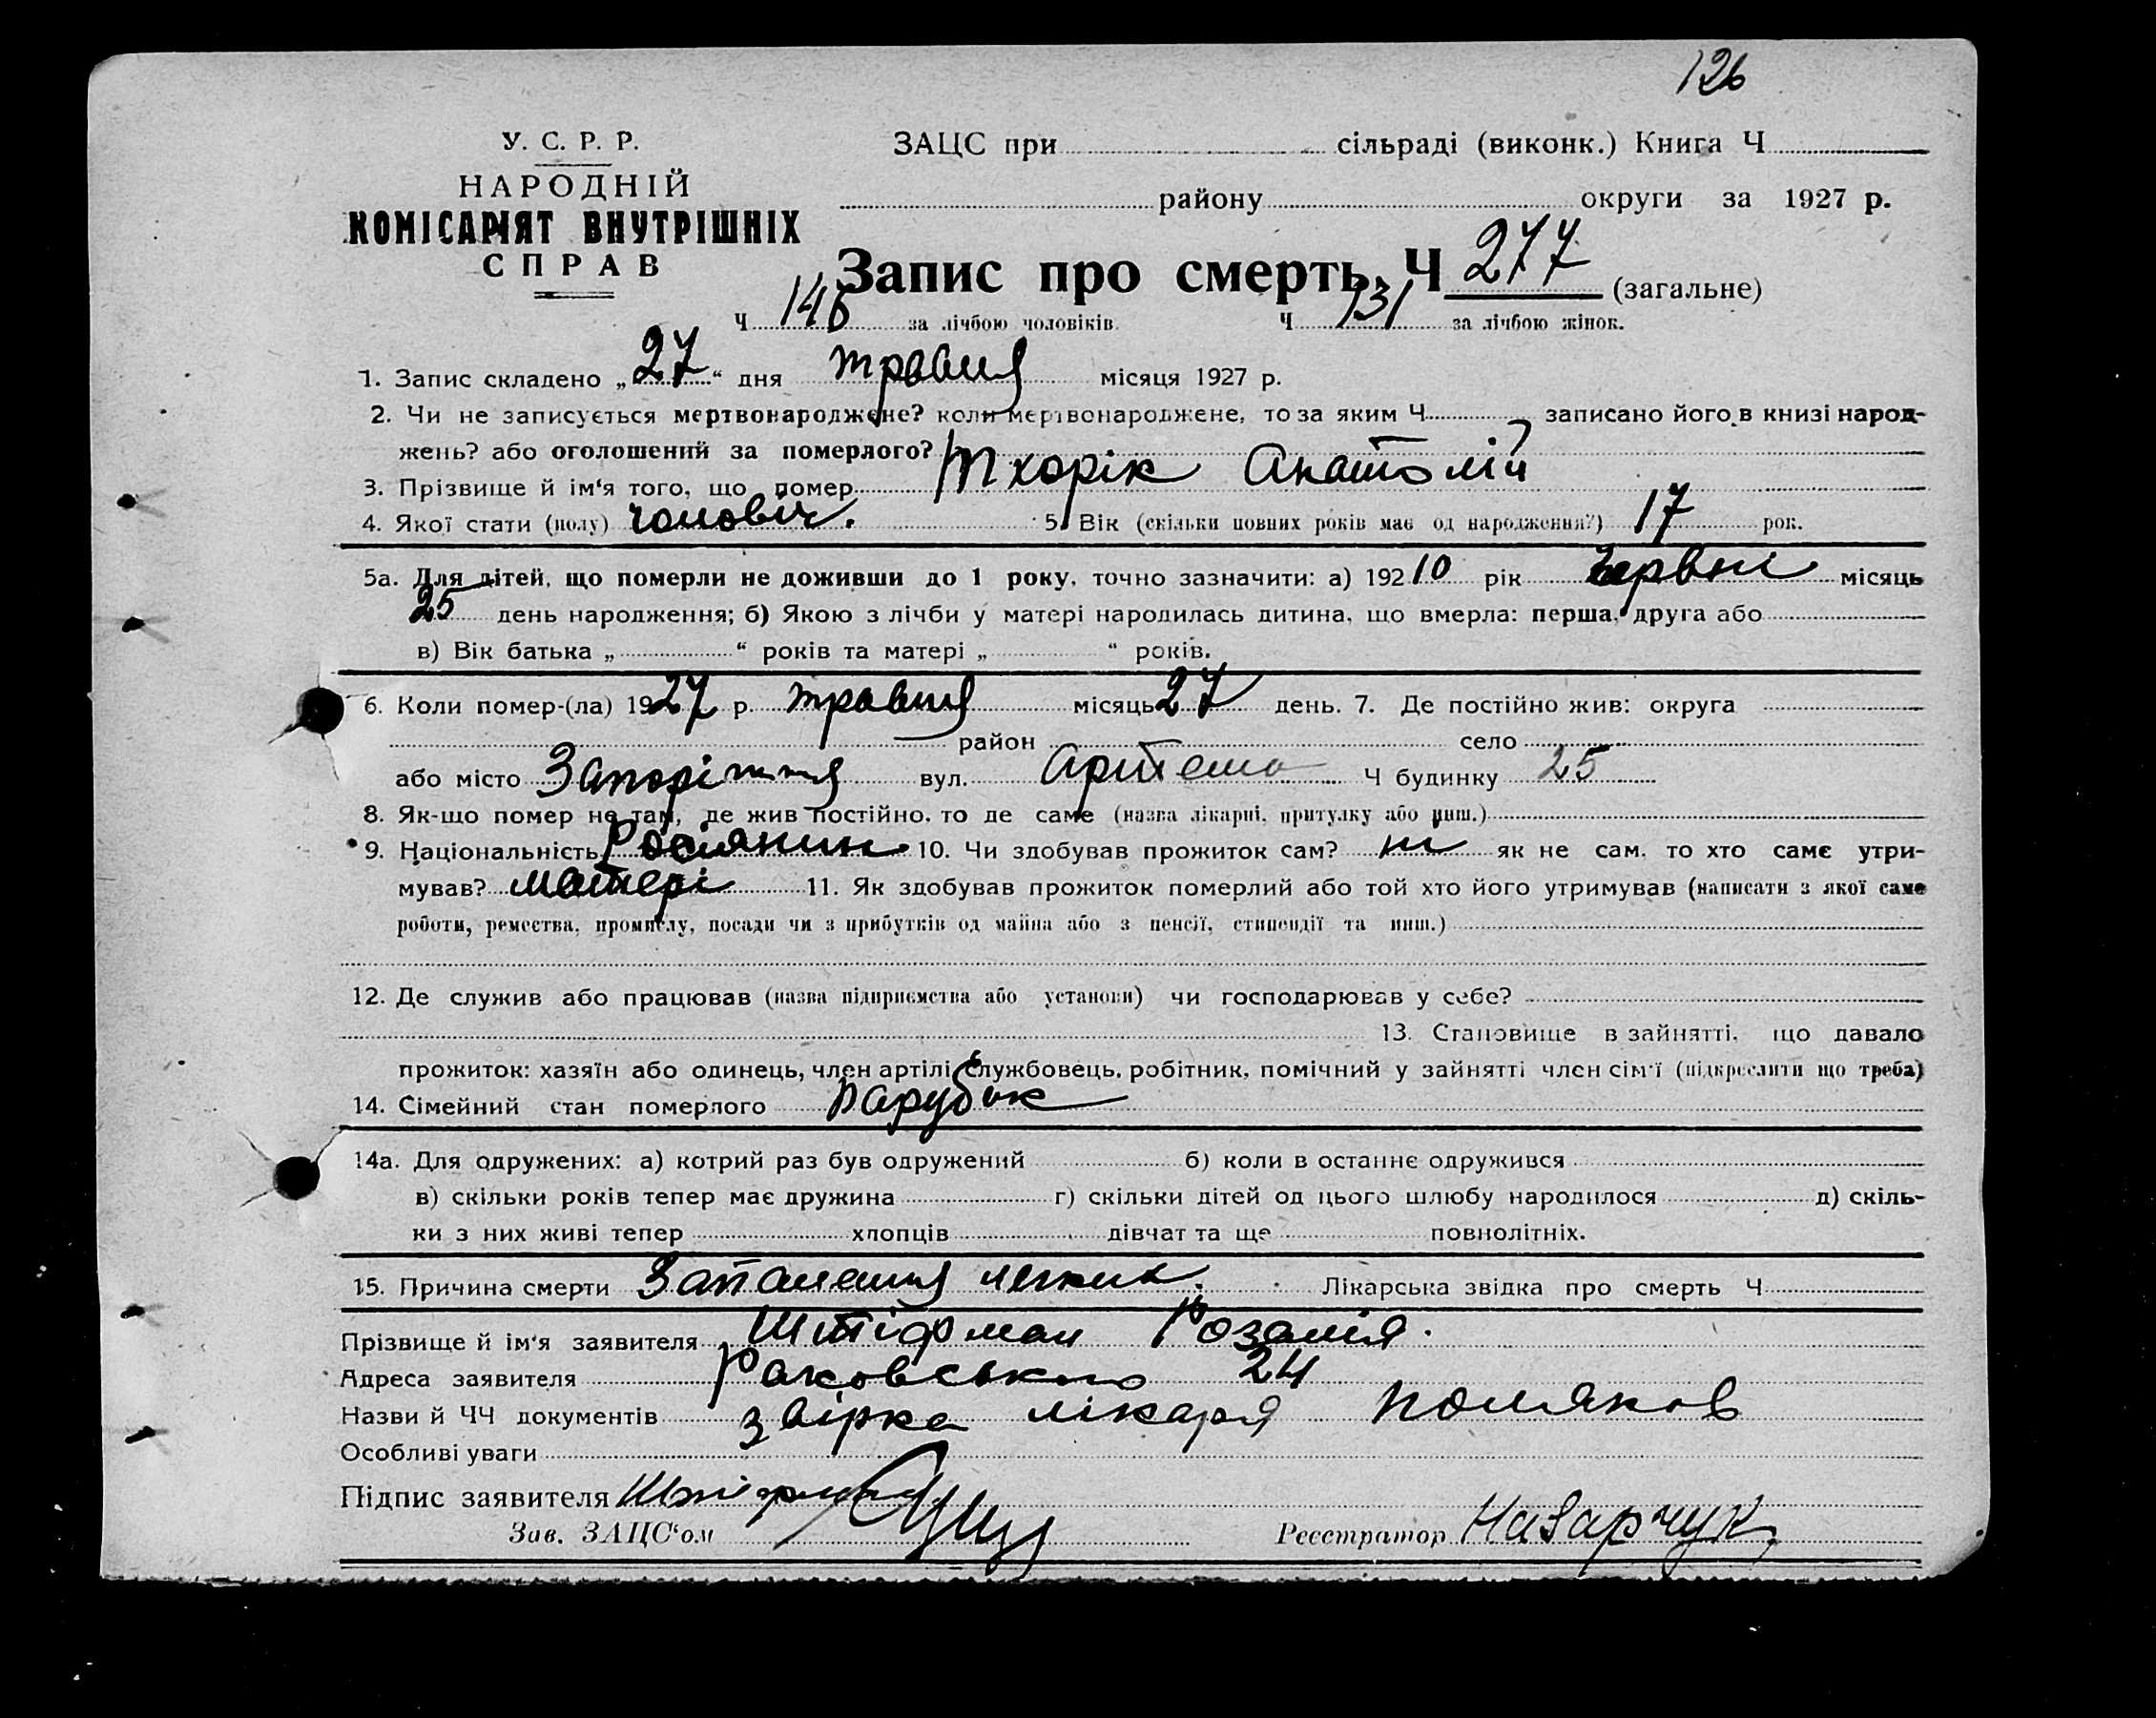 126
У. С. Р. Р.
НАРОДНІЙ
КОМІСАРІЯТ ВНУТРІШНІХ
СПРАВ
ЗАЦС при сільраді (виконк.) Книга Ч
району округи за 1927 р.
Запис про смерть. Ч 277 (загальне)
Ч 146 за лічбою чоловіків. Ч 131 за лічбою жінок.
1. Запис складено „27“ дня травня місяця 1927 р.
2. Чи не записується мертвонароджене? коли мертвонароджене, то за яким Ч записано його в книзі народ-
жень? або оголошений за померлого?
3. Прізвище й ім‘я того, що помер Тхорік Анатолій
4. Якої стати (полу) чоловіч. 5. Вік (скільки повних років має од народження?) 17 рок.
5а. Для дітей, що померли не доживши до 1 року, точно зазначити: а) 192 10 рік червні місяць
25 день народження; б) Якою з лічби у матері народилась дитина, що вмерла: перша, друга або
в) Вік батька „ “ років та матері „ “ років.
6. Коли помер-(ла) 1927 р. травня місяць 27 день. 7. Де постійно жив: округа
район село
або місто Запоріжжя вул. Артема Ч будинку 25
8. Як-що помер не там, де жив постійно, то де саме (назва лікарні, притулку або инш.)
9. Національність Росіянин 10. Чи здобував прожиток сам? ні як не сам, то хто саме утри-
мував? матері 11. Як здобував прожиток померлий або той хто його утримував (написати з якої саме
роботи, ремества, промислу, посади чи з прибутків од майна або з пенсії, стипендії та инш.)
12. Де служив або працював (назва підприємства або установи) чи господарював у себе?
13. Становище в зайнятті, що давало
прожиток: хазяїн або одинець, член артілі, службовець, робітник, помічний у зайнятті член сім‘ї (підкреслити що треба)
14. Сімейний стан померлого парубок
14а. Для одружених: а) котрий раз був одружений б) коли в останнє одружився
в) скільки років тепер має дружина г) скільки дітей од цього шлюбу народилося д) скіль-
ки з них живі тепер хлопців дівчат та ще повнолітніх.
15. Причина смерти Запалення легких. Лікарська звідка про смерть Ч
Прізвище й ім‘я заявителя Штіфман Розалія.
Адреса заявителя Раковського 24
Назви й ЧЧ документів звірка лікаря Поляков
Особливі уваги
Підпис заявителя Штіфман
Зав. ЗАЦС‘ом Реєстратор Назарчук